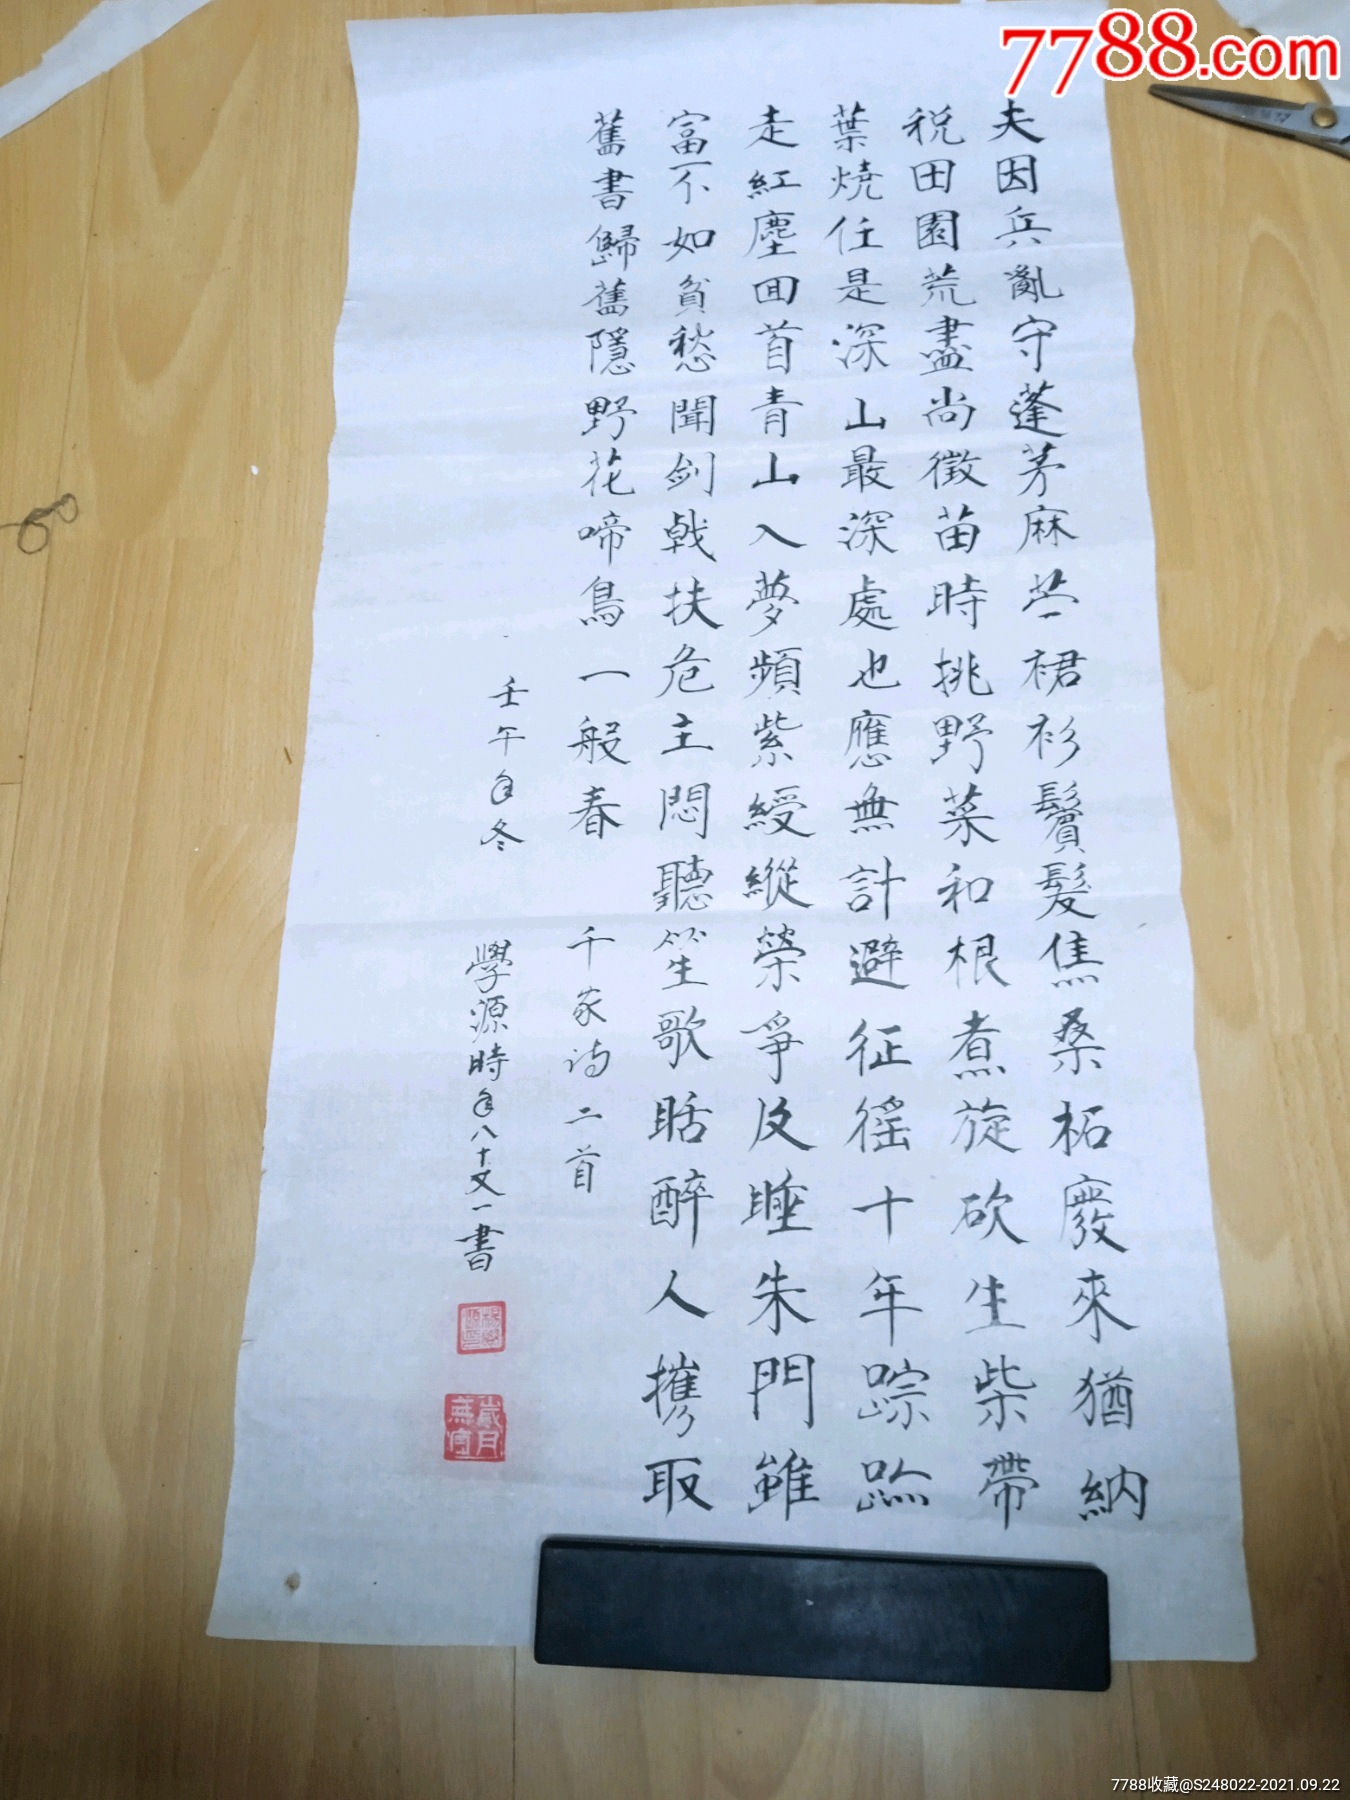 7788.com
夫因兵亂守蓬茅麻苎裙衫鬢髮焦桑柘廢來猶納
税田園荒盡尚徵苗時挑野菜和根煮旋砍生柴帶
葉燒任是深山最深處也應無計避征徭十年踪跡
走紅塵回首青山入夢頻紫綬縱榮爭及睡朱門雖
富不如貧愁聞劍戟扶危主悶聽笙歌聒醉人攜取
舊書歸舊隱野花啼鳥一般春 千家詩二首
壬午年冬 學源時年八十又一書
楊學源印
歲月無虛
7788收藏@S248022-2021.09.22